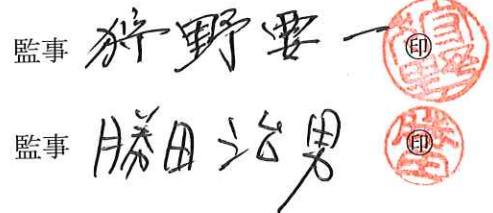 監事 狩野要一 ㊞
監事 勝田治男 ㊞